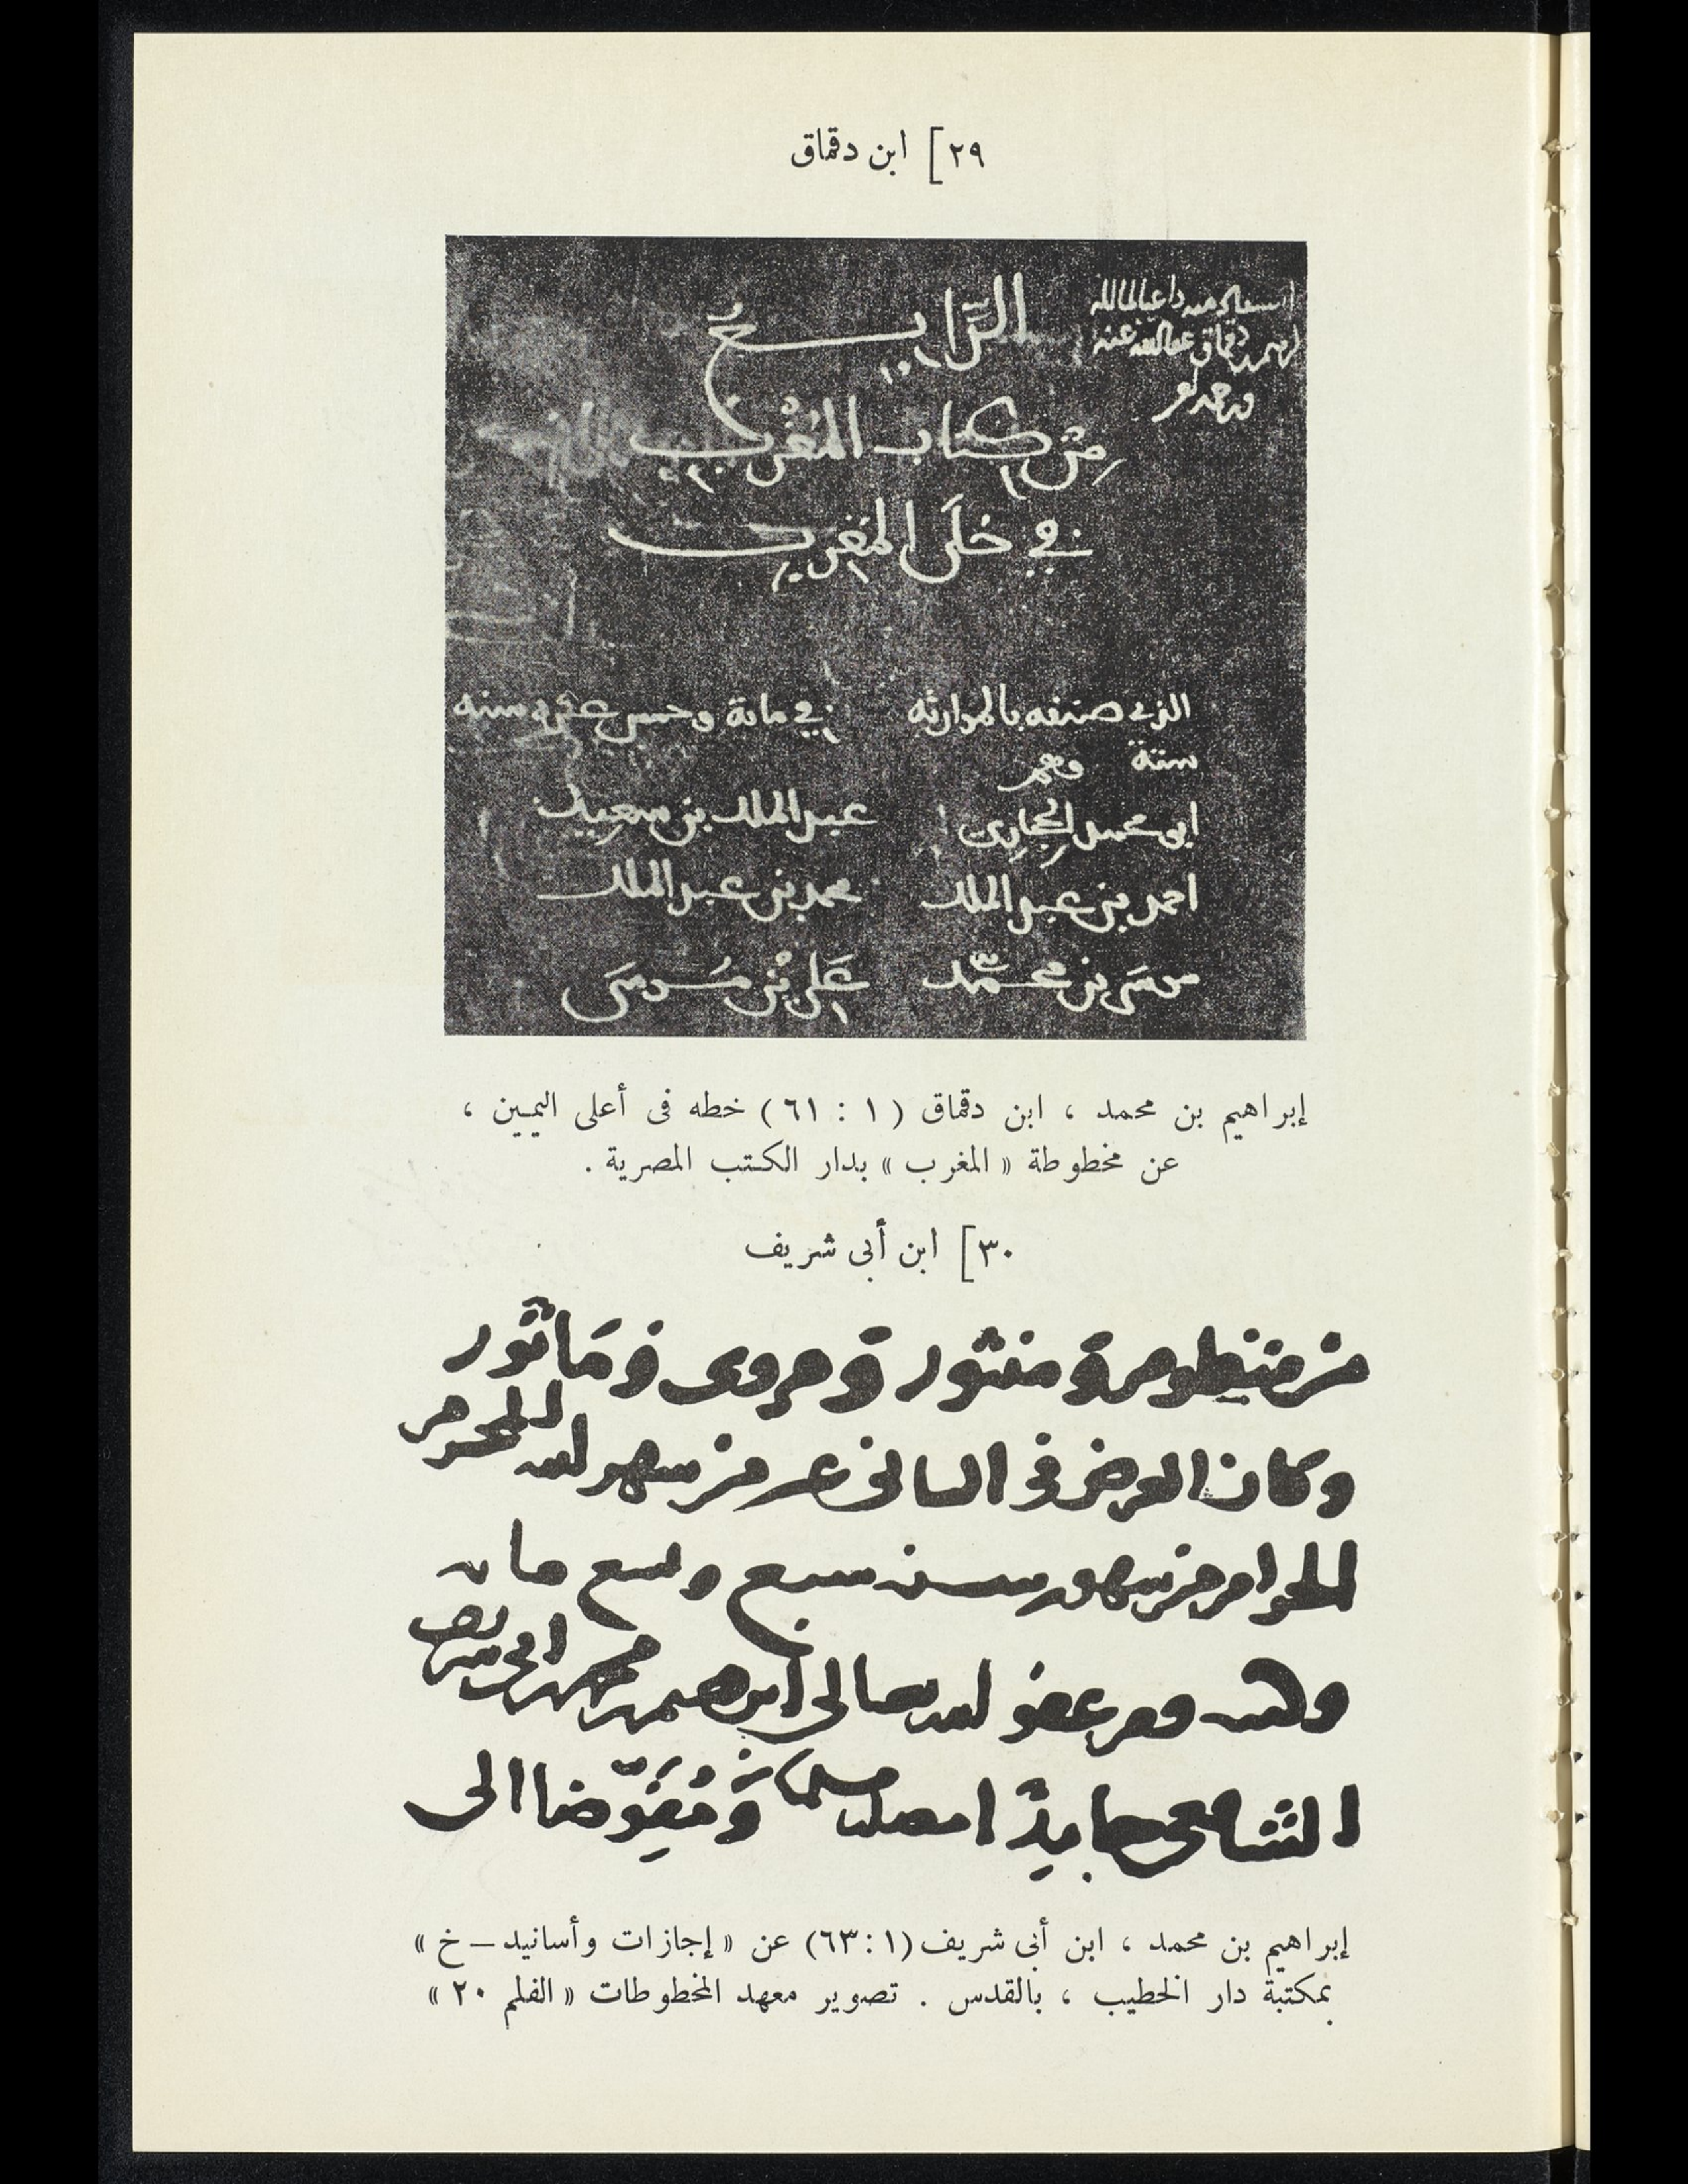 ٢٩] ابن دقماق
الرابع
من كتاب المغرب
في حلى المغرب
استفاد منه داعيا لمالكه
ابرهيم بن دقماق عفا الله عنه
الذي صنفه بالموارثه في مائة وخمس عشره سنه
ستة وهم
ابو محمد الحجاري عبد الملك بن سعيد
احمد بن عبد الملك محمد بن عبد الملك
موسى بن محمد علي بن موسى
إبراهيم بن محمد ، ابن دقماق ( ١ : ٦١ ) خطه فى أعلى اليمين ،
عن مخطوطة « المغرب » بدار الكتب المصرية .
٣٠] ابن أبى شريف
من منظوم ومنثور ومروى ومأثور
وكان العرض فى الثانى عشر من شهر الله المحرم
الحرام من شهور سنة سبع وتسع مائة
وكتب فقير عفو الله تعالى ابرهيم بن محمد بن ابى شريف
الشافعى حامدا مصليا مسلما ومفوضا الى
إبراهيم بن محمد ، ابن أبى شريف (١ : ٦٣) عن « إجازات وأسانيد – خ »
بمكتبة دار الخطيب ، بالقدس . تصوير معهد المخطوطات « الفلم ٢٠ »